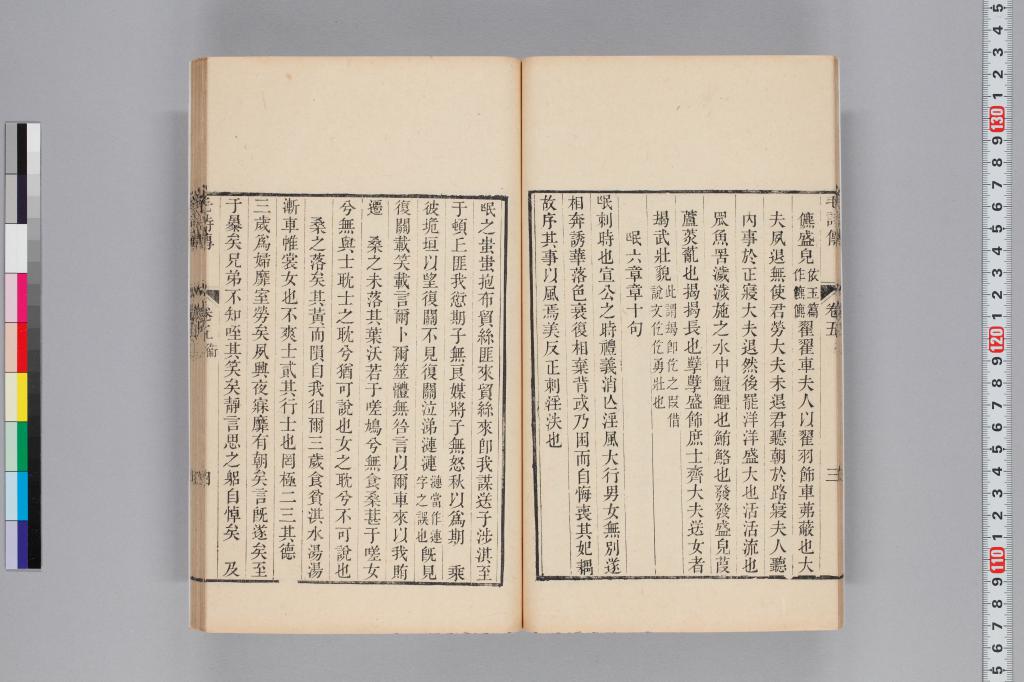 毛詩傳
卷五
三
儦盛皃依玉篇作儦儦翟翟車夫人以翟羽飾車茀蔽也大
夫夙退無使君勞大夫未退君聽朝於路寢夫人聽
內事於正寢大夫退然後罷洋洋盛大也活活流也
眾魚罟濊濊施之水中鱣鯉也鮪鮥也發發盛皃葭
蘆菼薍也揭揭長也孼孼盛飾庶士齊大夫送女者
朅武壯貌此謂朅卽仡之叚借說文仡仡勇壯也
氓六章章十句
氓刺時也宣公之時禮義消亾淫風大行男女無別遂
相奔誘華落色衰復相棄背或乃困而自悔喪其妃耦
故序其事以風焉美反正刺淫泆也
氓之蚩蚩抱布貿絲匪來貿絲來卽我謀送子涉淇至
于頓丘匪我愆期子無良媒將子無怒秋以爲期 乘
彼垝垣以望復關不見復關泣涕漣漣漣當作連字之誤也旣見
復關載笑載言爾卜爾筮體無咎言以爾車來以我賄
遷 桑之未落其葉沃若于嗟鳩兮無食桑葚于嗟女
兮無與士耽士之耽兮猶可說也女之耽兮不可說也
桑之落矣其黃而隕自我徂爾三歲食貧淇水湯湯
漸車帷裳女也不爽士貳其行士也罔極二三其德
三歲爲婦靡室勞矣夙興夜寐靡有朝矣言旣遂矣至
于㬥矣兄弟不知咥其笑矣靜言思之躳自悼矣 及
毛詩傳